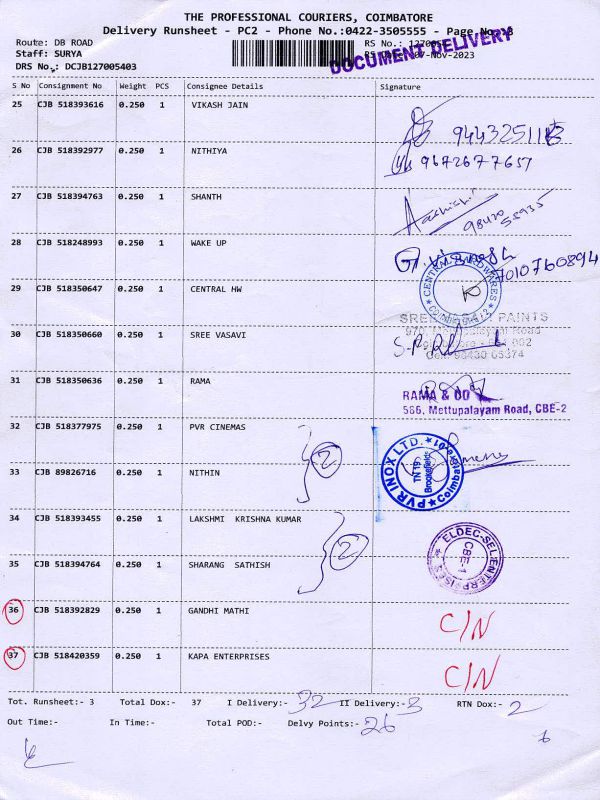 THE PROFESSIONAL COURIERS, COIMBATORE
Delivery Runsheet - PC2 - Phone No.:0422-3505555 - Page No.:3
Route: DB ROAD
Staff: SURYA
RS No.:
07-Nov-2023
DOCUMENT DELIVERY
DRS No.: DCJB127005403
S No Consignment No Weight PCS Consignee Details Signature
25 CJB 518393616 0.250 1 VIKASH JAIN
26 CJB 518392977 0.250 1 NITHIYA 9672677657
27 CJB 518394763 0.250 1 SHANTH
98420
58935
28 CJB 518248993 0.250 1 WAKE UP
7010760894
29 CJB 518350647 0.250 1 CENTRAL HW
CENTRAL HARDWARES
30 CJB 518350660 0.250 1 SREE VASAVI
PAINTS
Cell: 98430 65374
31 CJB 518350636 0.250 1 RAMA
RAMA & CO
586, Mettupalayam Road, CBE-2
32 CJB 518377975 0.250 1 PVR CINEMAS
2
PVR INOX LTD.
Coimbatore-01
TN T9
Brookefields
33 CJB 89826716 0.250 1 NITHIN
34 CJB 518393455 0.250 1 LAKSHMI KRISHNA KUMAR
2
ELDEC-SEL ENTERPRISES
CBE-1
35 CJB 518394764 0.250 1 SHARANG SATHISH
36 CJB 518392829 0.250 1 GANDHI MATHI C/N
37 CJB 518420359 0.250 1 KAPA ENTERPRISES C/N
Tot. Runsheet:- 3 Total Dox:- 37 I Delivery:- 32 II Delivery:- 3 RTN Dox:- 2
Out Time:- In Time:- Total POD:- Delvy Points:- 26